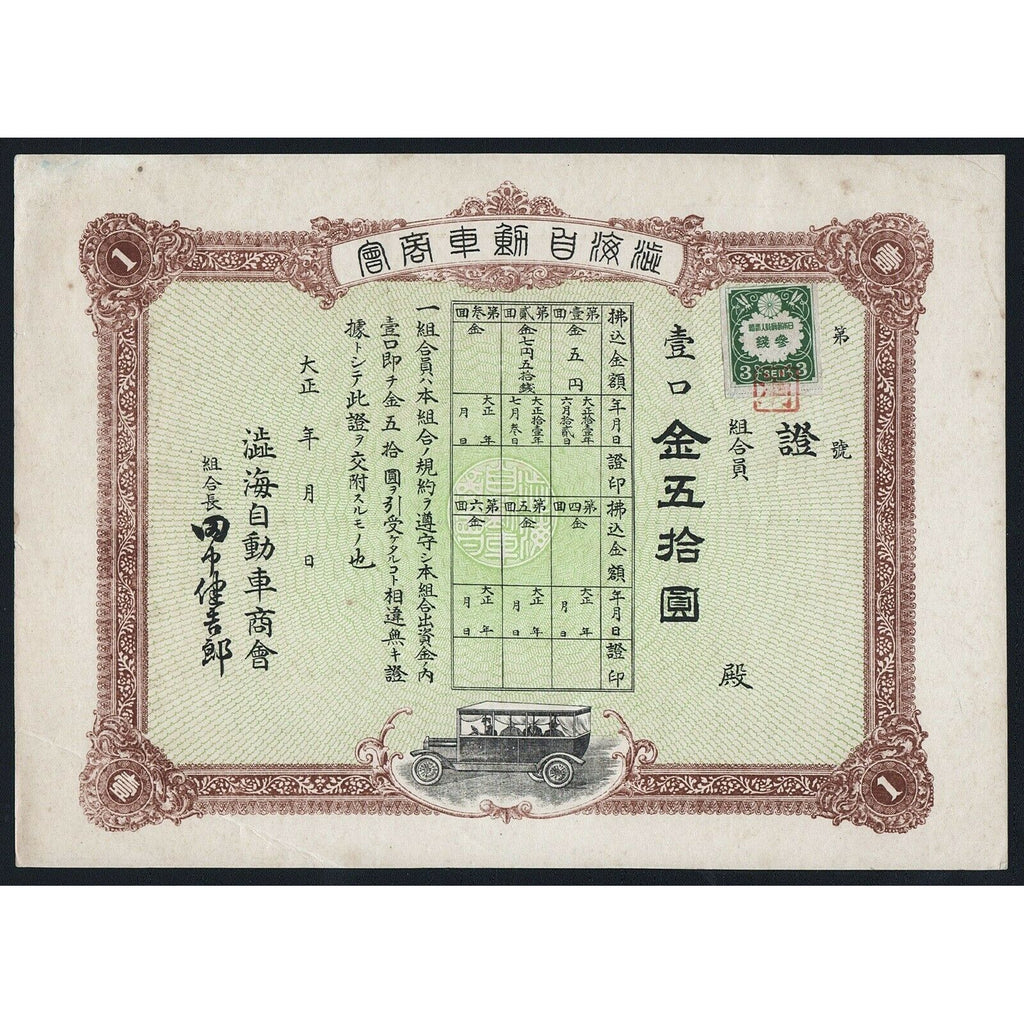 澁海自動車商會
第 號
證
組合員 殿
日本帝國政府収入印紙
參錢
3 SEN 3
壹口金五拾圓
拂込金額 年月日 證印 拂込金額 年月日 證印
第壹回 金五円 大正拾壹年六月拾貳日 第四回 金 大正 年 月 日
第貳回 金七円五拾銭 大正拾壹年七月叁日 第五回 金 大正 年 月 日
第叁回 金 大正 年 月 日 第六回 金 大正 年 月 日
一組合員ハ本組合ノ規約ヲ遵守シ本組合出資金ノ內
壹口即チ金五拾圓ヲ引受ケタルコト相違無キ證
據トシテ此證ヲ交附スルモノ也
大正 年 月 日
澁海自動車商會
組合長 田中健吉郎
1
壹
壹
1